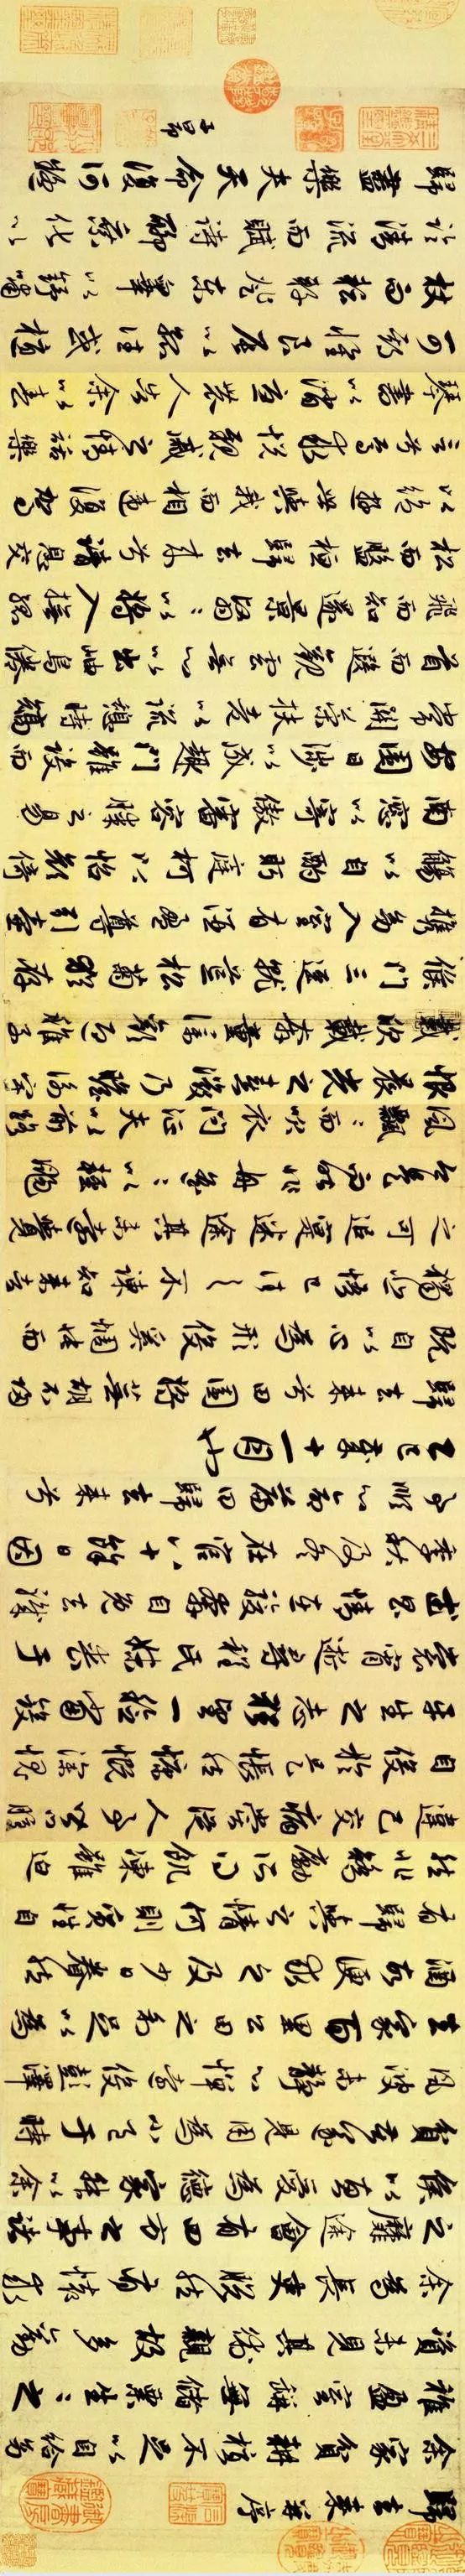 歸去來并序
余家貧耕植不足以自給幼
稚盈室缾無儲粟生〻之
資未見其術親故多勸
余爲長吏脫然有懷求
之靡途會有四方之事諸
侯以惠愛爲德家叔以余
貧苦遂見用爲小邑于時
風波未靜心憚遠役彭澤
去家百里公田之利足以爲
酒故便求之及少日眷然
有歸歟之情何則質性自
然非矯勵所得飢凍雖迫
違己交病嘗從人事皆口腹
自役於是悵然慷慨深愧
平生之志猶望一稔當斂
裳宵逝尋程氏妹喪于
武昌情在駿奔自免去職
季秋及冬在官八十餘日因
事順心命篇曰歸去來兮
乙巳歲十一月也
歸去來兮田園將蕪胡不歸
既自以心爲形役奚惆悵而
獨悲悟已往之不諫知來者
之可追寔迷途其未遠覺
今是而昨非舟遙〻以輕颺
風飄〻而吹衣問征夫以前路
恨晨光之熹微乃瞻衡宇
載欣載奔僮僕歡迎稚子
候門三逕就荒松菊猶存
攜幼入室有酒盈樽引壺
觴以自酌眄庭柯以怡顏倚
南窗以寄傲審容膝之易
安園日涉以成趣門雖設而
常關策扶老以流憩時矯
首而遐觀雲無心以出岫鳥倦
飛而知還景翳〻以將入撫孤
松而盤桓歸去來兮請息交
以絕遊世與我而相違復駕
言兮焉求悅親戚之情話樂
琴書以消憂農人告余以春
懷良辰以孤往或植
杖而耘耔登東皋以舒嘯
臨清流而賦詩聊乘化以
歸盡樂夫天命復何疑
子昂